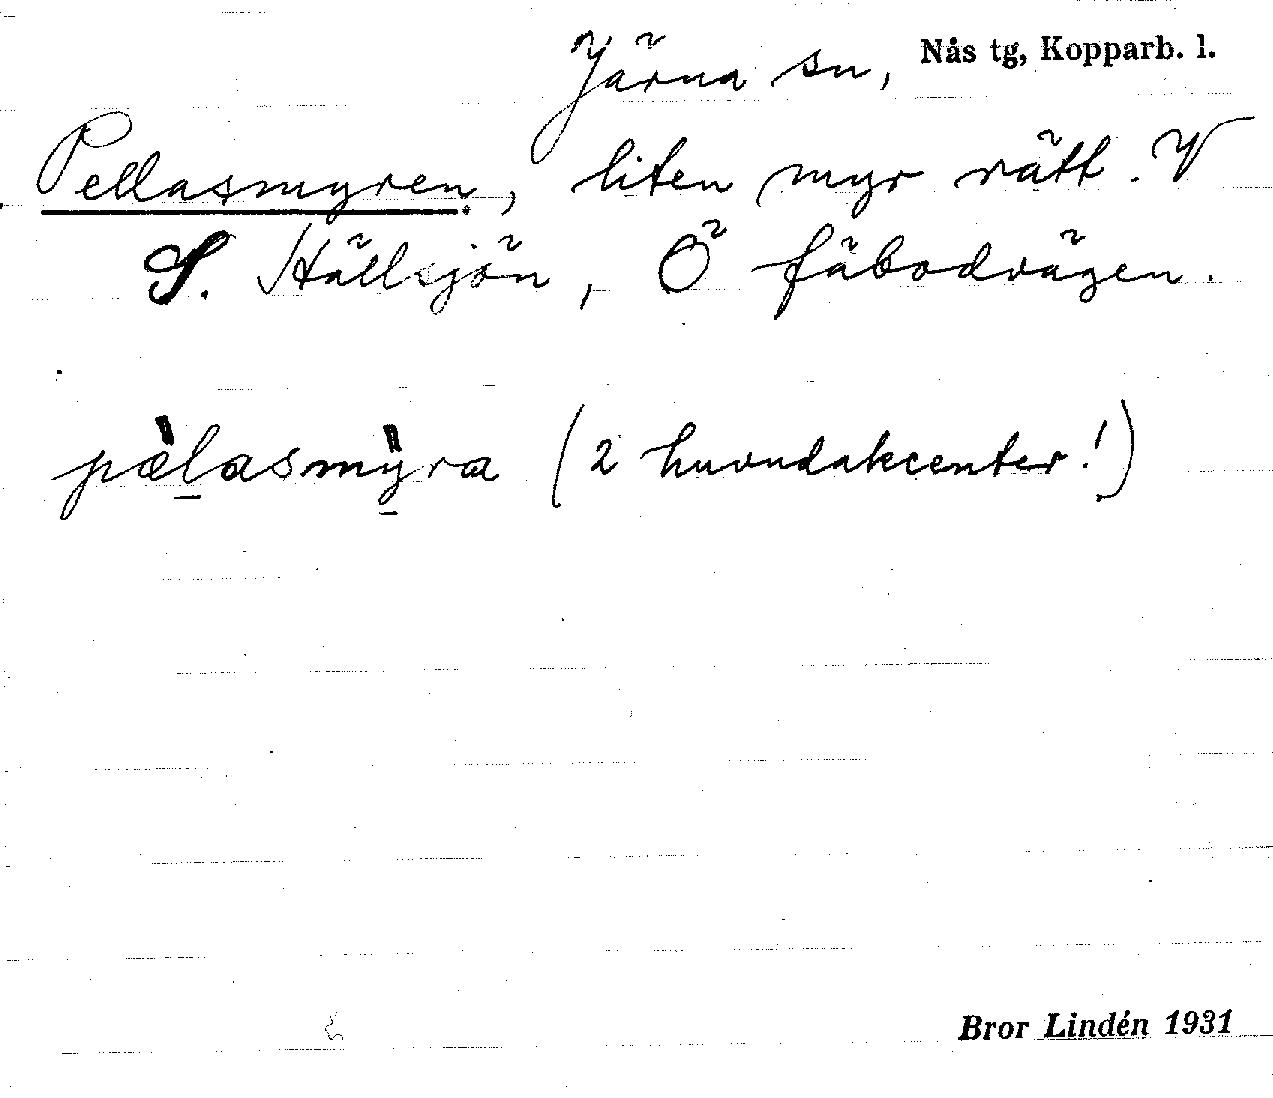 Järna sn, Nås tg, Kopparb. l.
Pellasmyren, liten myr rätt V
S. Hällsjön, Ö fäbodvägen.
pæ̀l̠asmỳ̠ra (2 huvudakcenter!)
Bror Lindén 1931